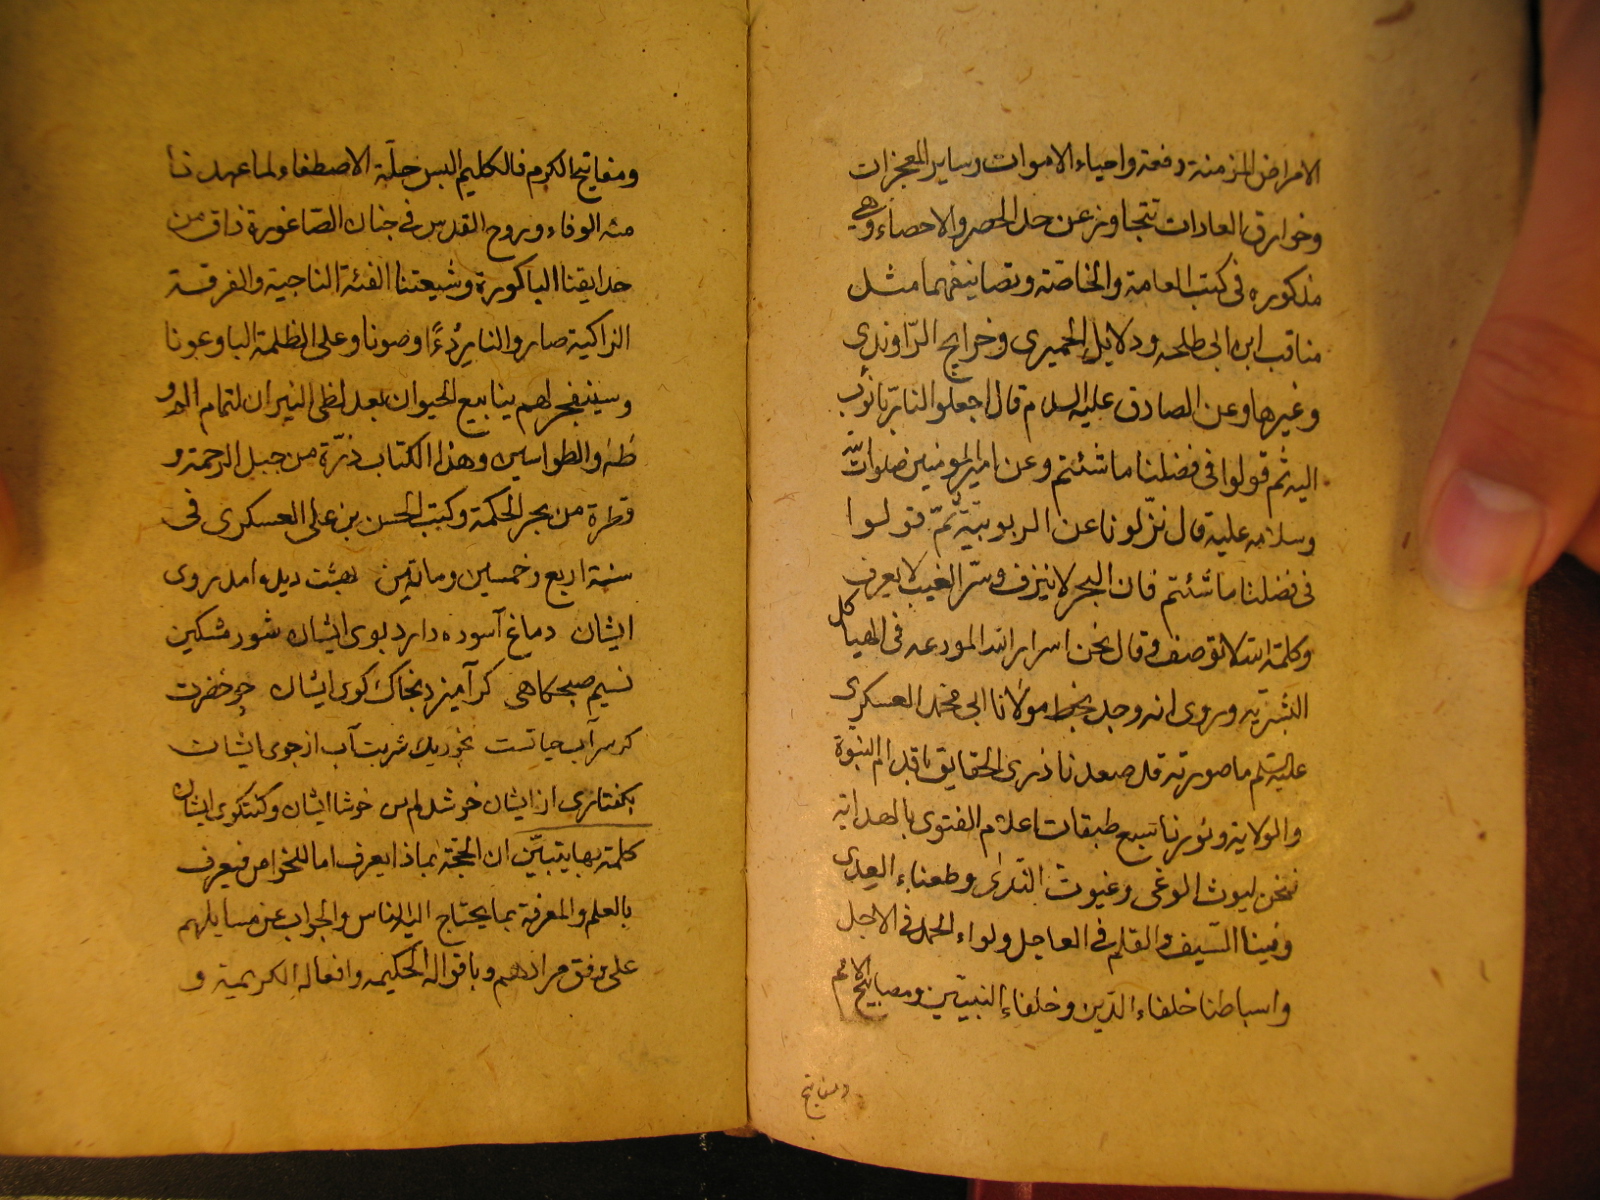 الامراض المزمنة دفعة واحياء الاموات وساير المعجزات
وخوارق العادات تتجاوز عن حد الحصر والاحصاء وهي
مذكوره فى كتب العامة والخاصّة وتصانيفهما مثل
مناقب ابن ابى طلحه ودلايل الحميرى وخرايج الرّاوندى
وغيرها وعن الصادق عليه السلام قال اجعلوا لنا ربّا نؤب
اليه ثم قولوا فى فضلنا ما شئتم وعن امير المومنين صلوات الله
وسلامه عليه قال نزّلونا عن الربوبيّة ثمّ قولوا
فى فضلنا ما شئتم فان البحر لا ينزف وسّر الغيب لا يعرف
وكلمة الله لا توصف وقال نحن اسرار الله المودعه فى الهياكل
البشريه وروى انه وجد بخط مولانا ابى محمد العسكرى
عليه السّلم ما صورته قد صعدنا ذرى الحقايق باقدام النبوّة
والولاية ونورنا سبع طبقات اعلام الفتوى بالهداية
فنحن ليوث الوغى وغيوث النّدى وطعناء العدى
وفينا السّيف والقلم فى العاجل ولواء الحمد فى الاجل
واسباطنا خلفاء الدّين وخلفاء النبيّين ومصابيح الامم
ومفاتيح
ومفاتيح الكرم فالكليم البس حلّة الاصطفاء لما عهدنا
منه الوفاء وروح القدس فى جنان الصّاغورة ذاق من
حدايقنا الباكورة وشيعتنا الفئة الناجية والفرقة
الزاكية صاروا لنا رِدْءًا وصونا وعلى الظلمة البا وعونا
وسينفجر لهم ينابيع الحيوان بعد لظى النيران لتمام الم و
طه والطواسين وهذا الكتاب ذرّة من جبل الرحمة و
قطرة من بحر الحكمة وكتب الحسن بن على العسكرى فى
سنة اربع وخمسين ومأتين بهشت ديده امد روى
ايشان دماغ آسوده دارد بوى ايشان شود مشكين
نسيم صبحكاهى كر آميزد بخاك كوى ايشان چو خضرت
كر سر آب حياتست بخور يك شربت آب از جوى ايشان
بكفتارى از ايشان خوشدلم بس خوشا ايشان وكفتكوى ايشان
كلمة بها يتبيّن ان الحجّة بماذا يعرف اما للخواص فيعرف
بالعلم والمعرفة بما يحتاج اليه الناس والجواب عن مسايلهم
على وفق مرادهم وباقواله الحكيمه وافعاله الكريمية و